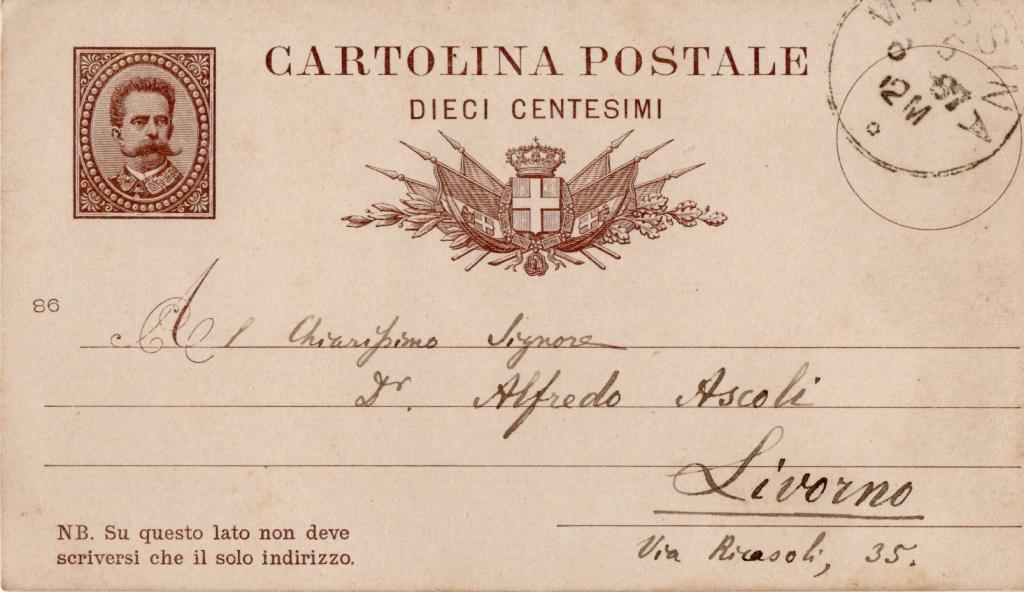 CARTOLINA POSTALE
DIECI CENTESIMI
12 M
86
Al Chiarissimo Signore
Dr. Alfredo Ascoli
Livorno
Via Ricasoli, 35.
NB. Su questo lato non deve
scriversi che il solo indirizzo.